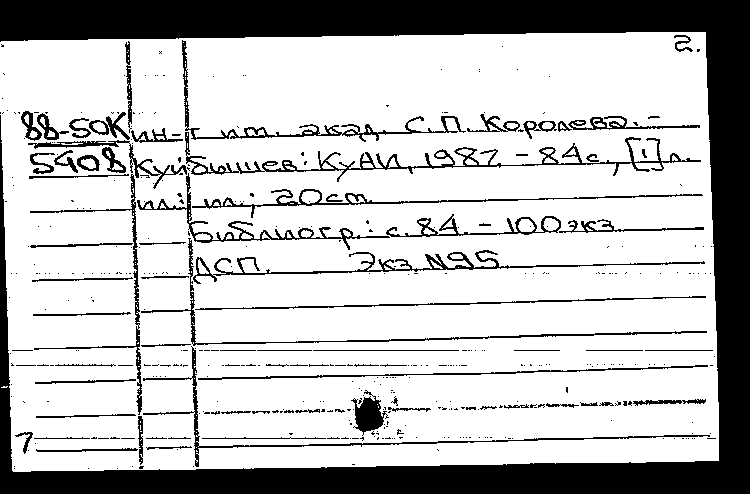 2.
88-50К ин-т им. акад. С.П. Королева. -
5408 Куйбышев: КуАИ, 1987. - 84с., [1] л.
ил.: ил.; 20см.
Библиогр.: с. 84. - 100экз.
ДСП. Экз. N95
7